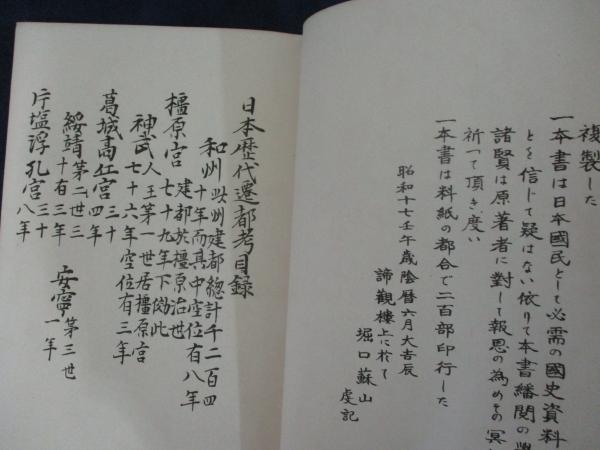 複製した
一本書は日本國民として必需の國史資料
とを信じて疑はない依りて本書繙閲の
諸賢は原著者に對して報恩の為めその冥
祈って頂き度い
一本書は料紙の都合で二百部印行した
昭和十七壬午歳陰暦六月大吉辰
諦觀樓上に於て
堀口蘇山
虔記
日本歴代遷都考目録
和州 此州建都總計千二百四
十年而其中空位有八年
橿原宮 建都於橿原治世
七十九年下効此
神武 人王第一世居橿原宮
七十六年空位有三年
葛城高丘宮 三十
四年
綏靖 第二世三
十有三年
片塩浮孔宮 三十
八年
安寧 第三世
一年